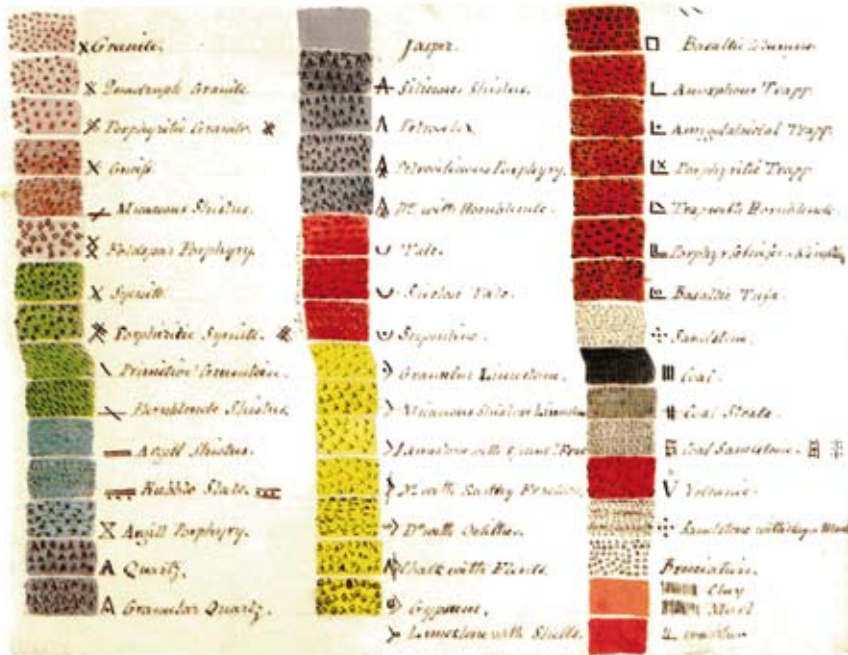 Granite.
Quadruple Granite
Porphyritic Granite.
Gneiss
Micaceous Shistus.
Feldspar Porphyry.
Syenite
Porphiritic Syenite.
Primitive Greenstein.
Hornblende Shistus.
Argill Shistus.
Rubble Slate.
Argill Porphyry.
Quartz.
Granular Quartz.
Jasper.
Silicious Shistus.
Petrosilex
Petrosilicious Porphyry.
Do. with Hornblende.
Talc.
Shistose Talc.
Serpentine.
Granular Limestone.
Micaceous Shistose
Limestone with
Do. with Earthy Fracture
Do. with Oolites.
Chalk with Flints.
Gypsum.
Limestone with Shells.
Basaltic Columns.
Amorphous Trapp.
Amygdaloidal Trapp.
Porphyritic Trapp
Trap with Hornblende.
Basaltic Tufa.
Sandstone.
Coal.
Coal Strata.
Coal Sandstone.
Volcanic.
Sandstone with
Clay
Marl